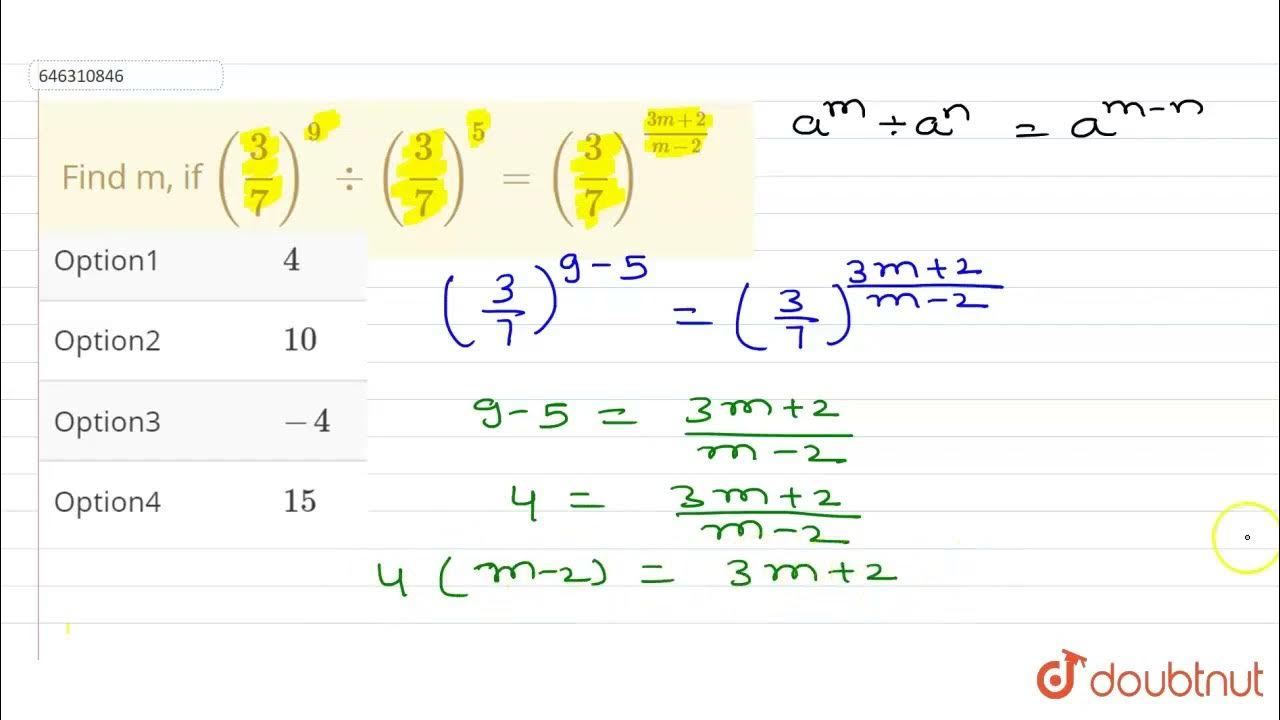 646310846
Find m, if (3/7)^9 ÷ (3/7)^5 = (3/7)^((3m+2)/(m−2))
a^m ÷ a^n = a^(m-n)
Option1 4
Option2 10
Option3 −4
Option4 15
(3/7)^(9-5) = (3/7)^((3m+2)/(m-2))
9-5 = (3m+2)/(m-2)
4 = (3m+2)/(m-2)
4 (m-2) = 3m+2
doubtnut